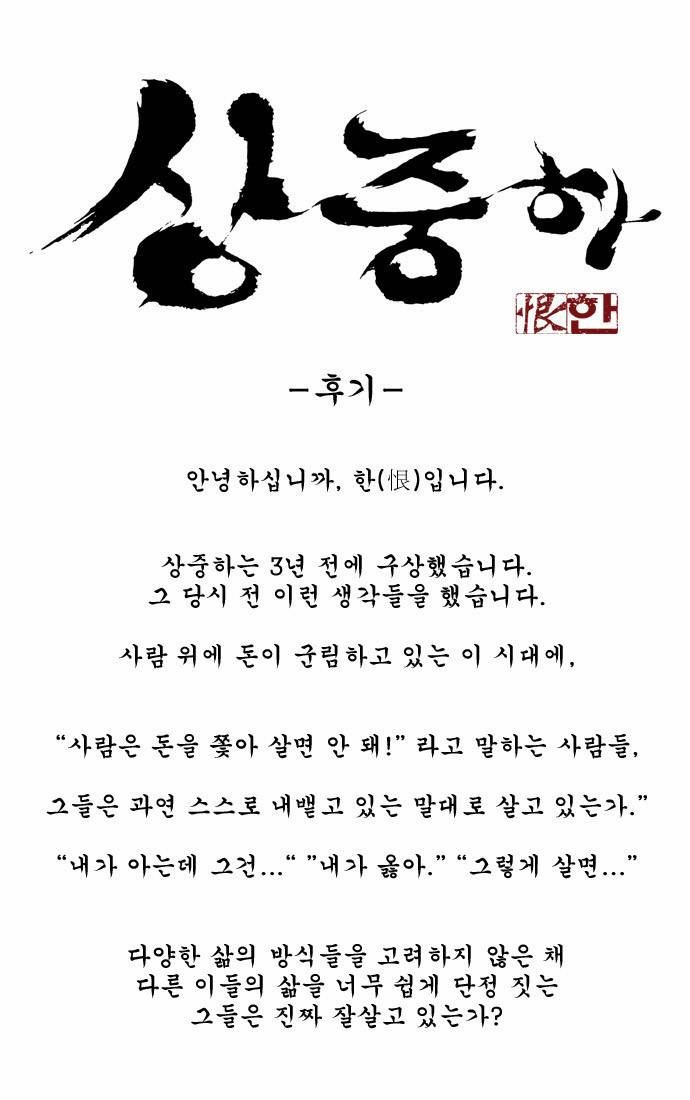 상중하
恨한
-후기-
안녕하십니까, 한(恨)입니다.
상중하는 3년 전에 구상했습니다.
그 당시 전 이런 생각들을 했습니다.
사람 위에 돈이 군림하고 있는 이 시대에,
“사람은 돈을 쫓아 살면 안 돼!” 라고 말하는 사람들,
그들은 과연 스스로 내뱉고 있는 말대로 살고 있는가.”
“내가 아는데 그건...“ ”내가 옳아.” “그렇게 살면...”
다양한 삶의 방식들을 고려하지 않은 채
다른 이들의 삶을 너무 쉽게 단정 짓는
그들은 진짜 잘살고 있는가?